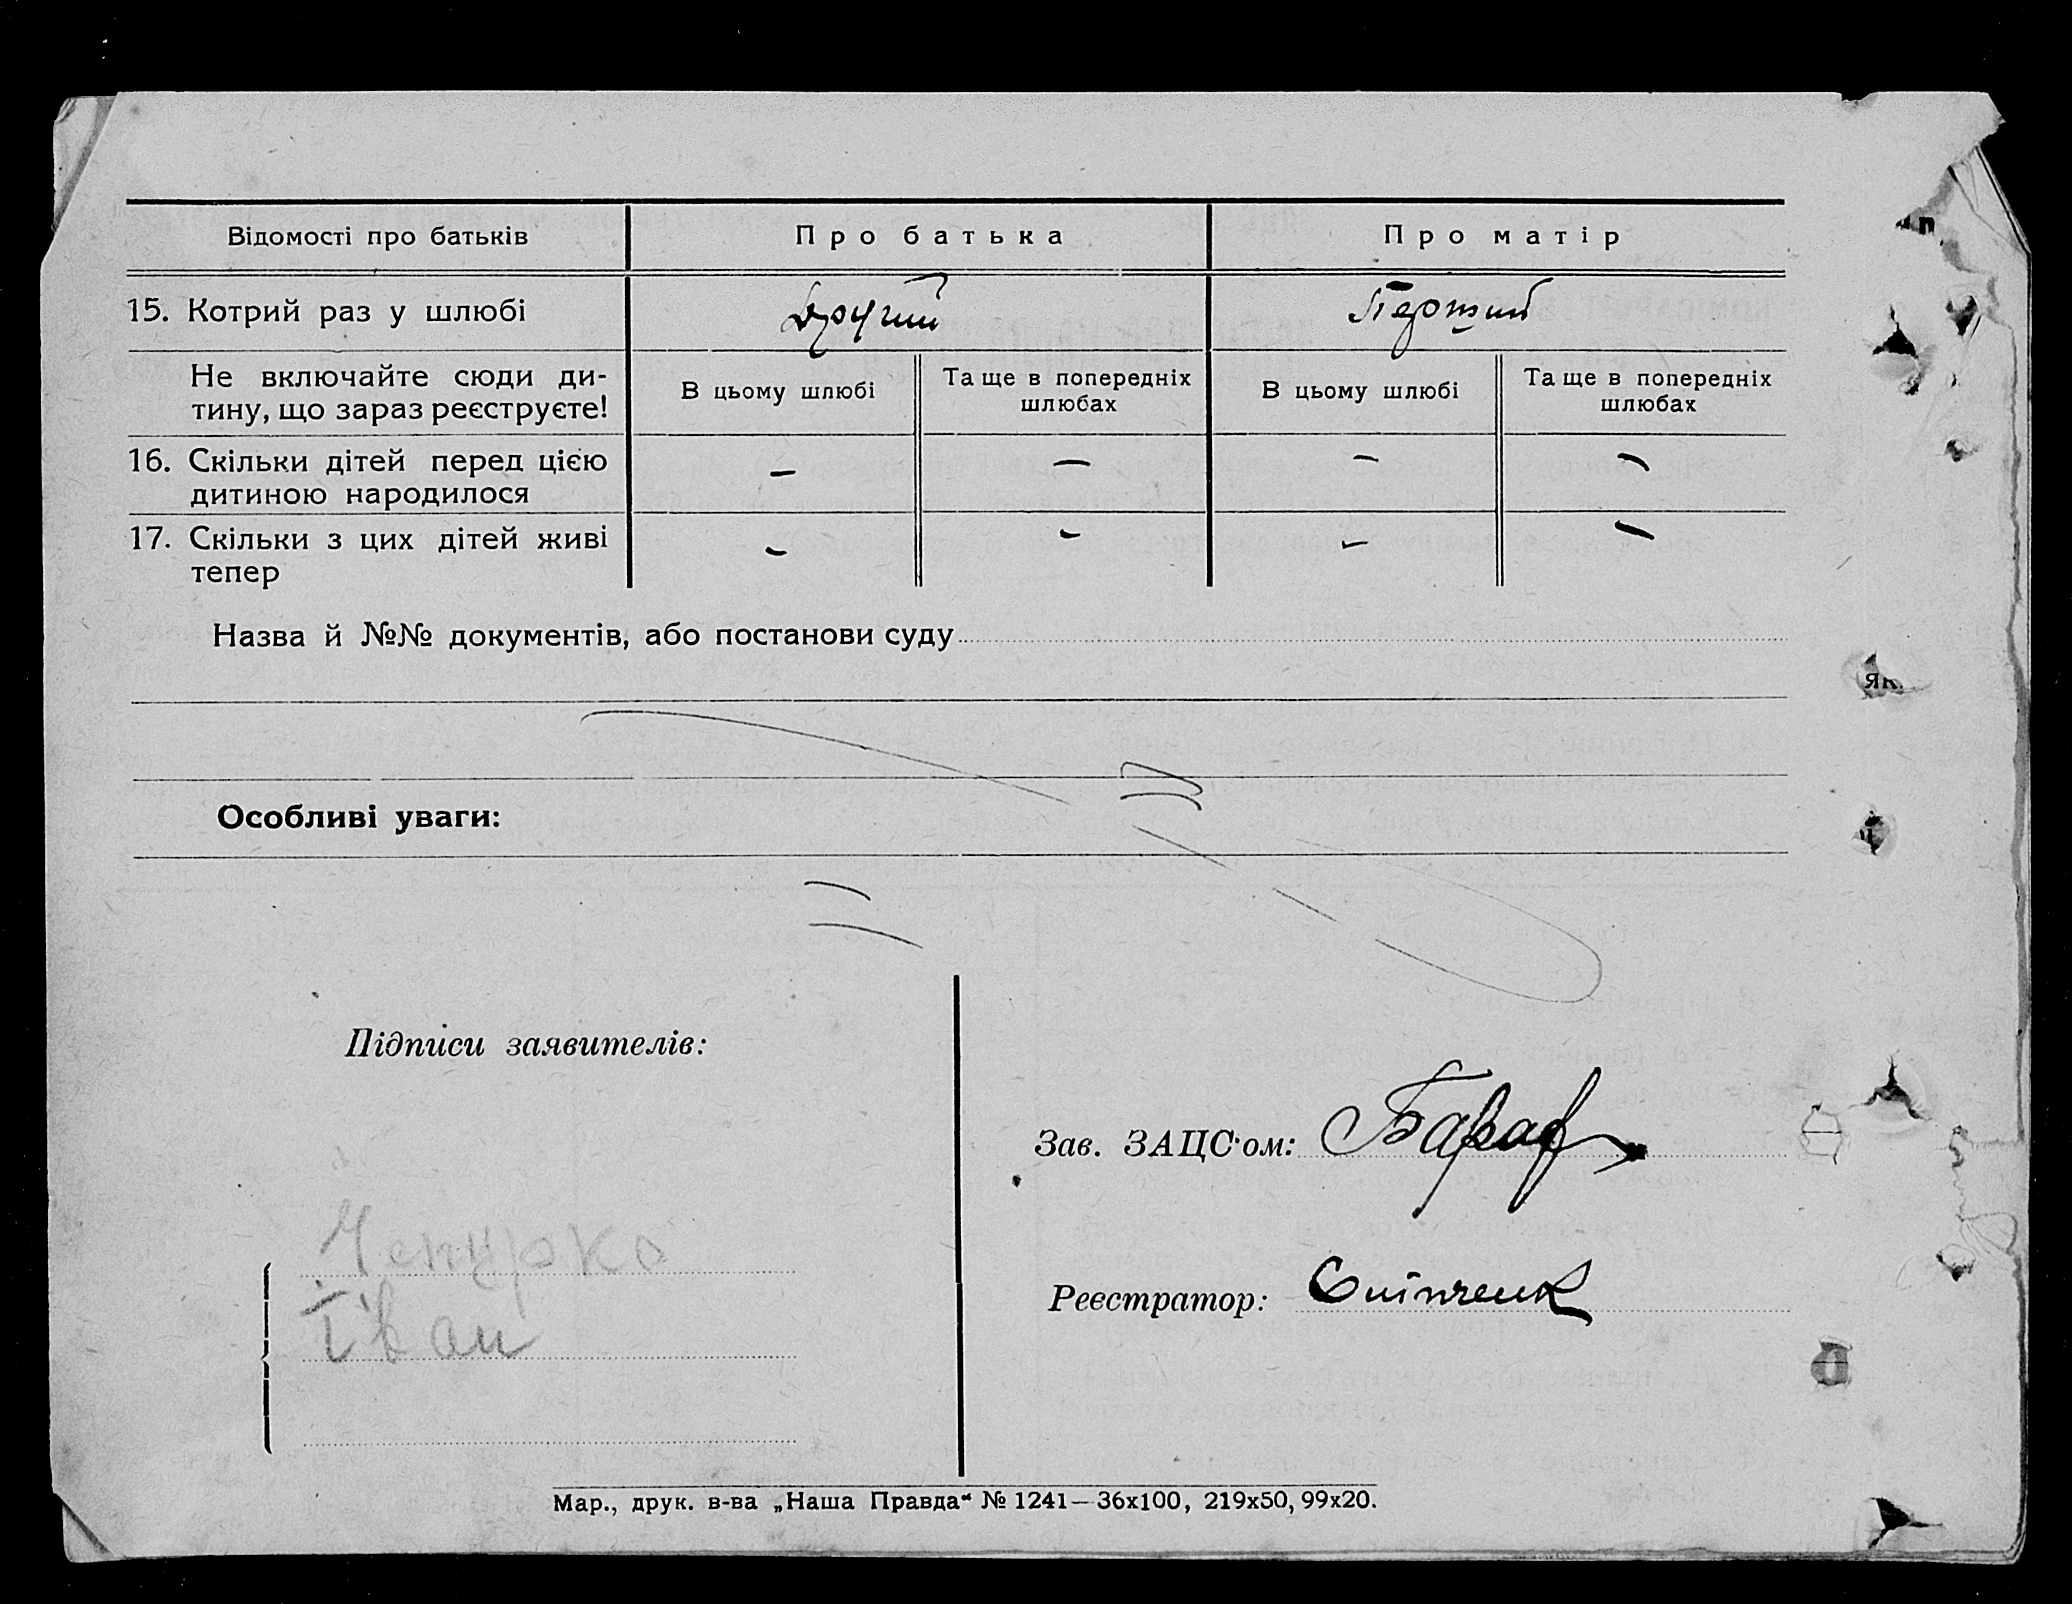 Відомості про батьків
Про батька
Про матір
15. Котрий раз у шлюбі
Другий
Перший
Не включайте сюди ди-
тину, що зараз реєструєте!
В цьому шлюбі
Та ще в попередніх
шлюбах
В цьому шлюбі
Та ще в попередніх
шлюбах
16. Скільки дітей перед цією
дитиною народилося
— — — —
17. Скільки з цих дітей живі
тепер
— — — —
Назва й №№ документів, або постанови суду
Особливі уваги:
Підписи заявителів:
Зав. ЗАЦС'ом:
Чепурко
Іван
Реєстратор:
Мар., друк. в-ва „Наша Правда“ № 1241—36х100, 219х50, 99х20.